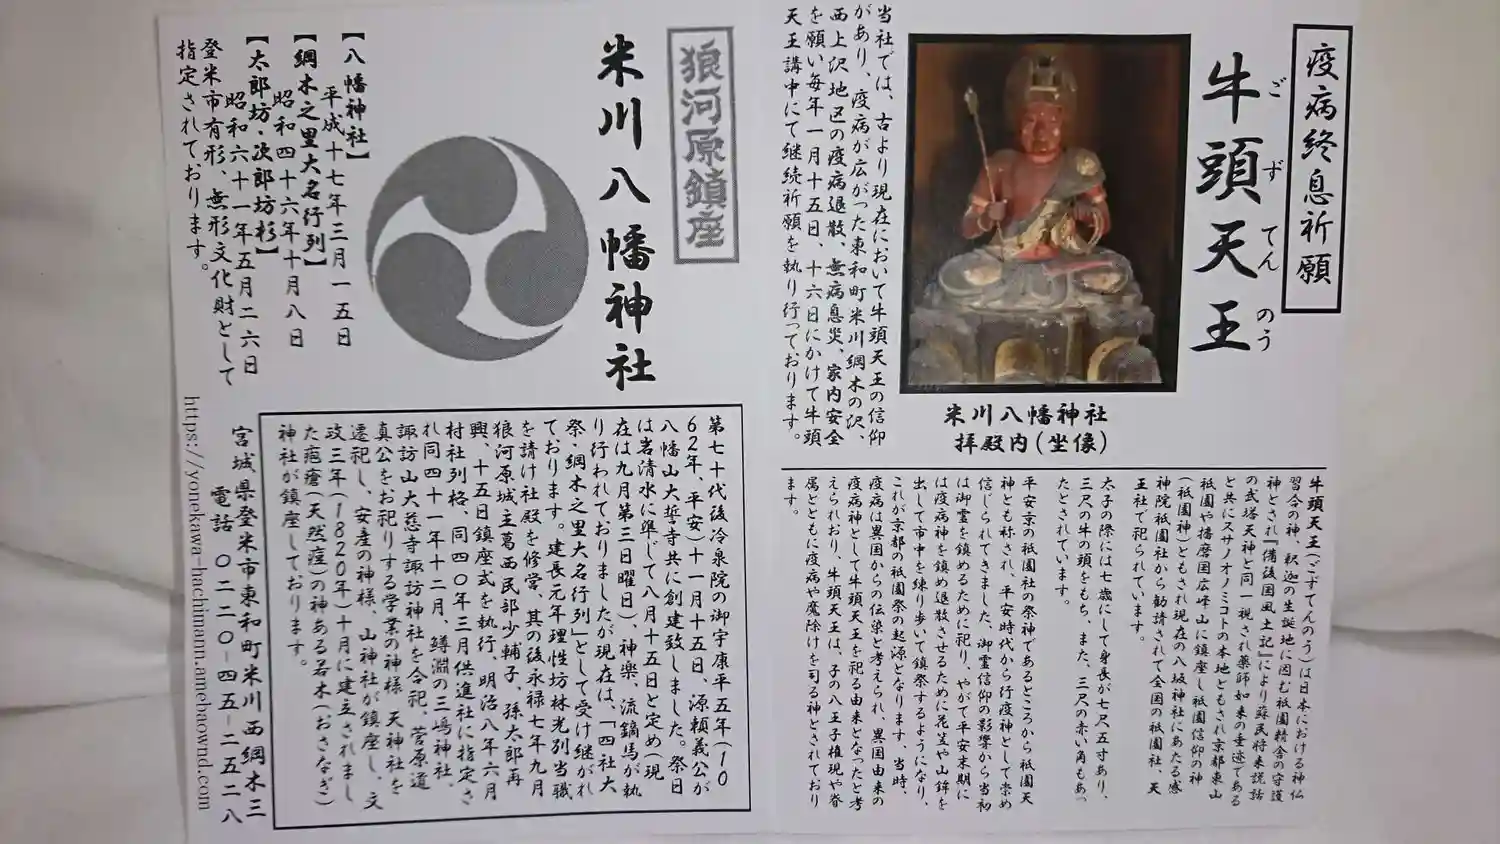 疫病終息祈願
牛頭天王
ごずてんのう
米川八幡神社
拝殿内(坐像)
当社では、古より現在において牛頭天王の信仰
があり、疫病が広がった東和町米川綱木の沢、
西上沢地区の疫病退散、無病息災、家内安全
を願い毎年一月十五日、十六日にかけて牛頭
天王講中にて継続祈願を執り行っております。
牛頭天王(ごずてんのう)は日本における神仏
習合の神、釈迦の生誕地に因む祇園精舎の守護
神とされ『備後国風土記』により蘇民将来説話
の武塔天神と同一視され薬師如来の垂迹である
と共にスサノオノミコトの本地ともされ京都東山
祇園や播磨国広峰山に鎮座し祇園信仰の神
(祇園神)ともされ現在の八坂神社にあたる感
神院祇園社から勧請されて全国の祇園社、天
王社で祀られています。
太子の際には七歳にして身長が七尺五寸あり、
三尺の牛の頭をもち、また、三尺の赤い角もあっ
たとされています。
平安京の祇園社の祭神であるところから祇園天
神とも称され、平安時代から行疫神として崇め
信じられてきました、御霊信仰の影響から当初
は御霊を鎮めるために祀り、やがて平安末期に
は疫病神を鎮め退散させるために花笠や山鉾を
出して市中を練り歩いて鎮祭するようになり、
これが京都の祇園祭の起源となります、当時、
疫病は異国からの伝染と考えられ、異国由来の
疫病神として牛頭天王を祀る由来となったと考
えられおり、牛頭天王は、子の八王子権現や眷
属とともに疫病や魔除けを司る神とされており
ます。
狼河原鎮座
米川八幡神社
【八幡神社】
平成十七年三月一五日
【綱木之里大名行列】
昭和四十六年十月八日
【太郎坊・次郎坊杉】
昭和六十一年五月二六日
登米市有形、無形文化財として
指定されております。
第七十代後冷泉院の御宇康平五年(10
62年、平安)十一月十五日、源頼義公が
八幡山大誓寺共に創建致しました。祭日
は岩清水に準じて八月十五日と定め(現
在は九月第三日曜日)、神楽、流鏑馬が執
り行われておりましたが現在は、「四社大
祭・綱木之里大名行列」として受け継がれ
ております。建長元年理性坊林光別当職
を請け社殿を修営、其の後永禄七年九月
狼河原城主葛西民部少輔子、孫太郎再
興、十五日鎮座式を執行、明治八年六月
村社列格、同四〇年三月供進社に指定さ
れ同四十一年十二月、鱒淵の三嶋神社、
諏訪山大慈寺諏訪神社を合祀、菅原道
真公をお祀りする学業の神様、天神社を
遷祀し、安産の神様、山神社が鎮座し、文
政三年(1820年)十月に建立されまし
た疱瘡(天然痘)の神ある若木(おさなぎ)
神社が鎮座しております。
宮城県登米市東和町米川西綱木三
電話 〇二二〇-四五-二五二八
https://yonekawa-hachimann.amebaownd.com